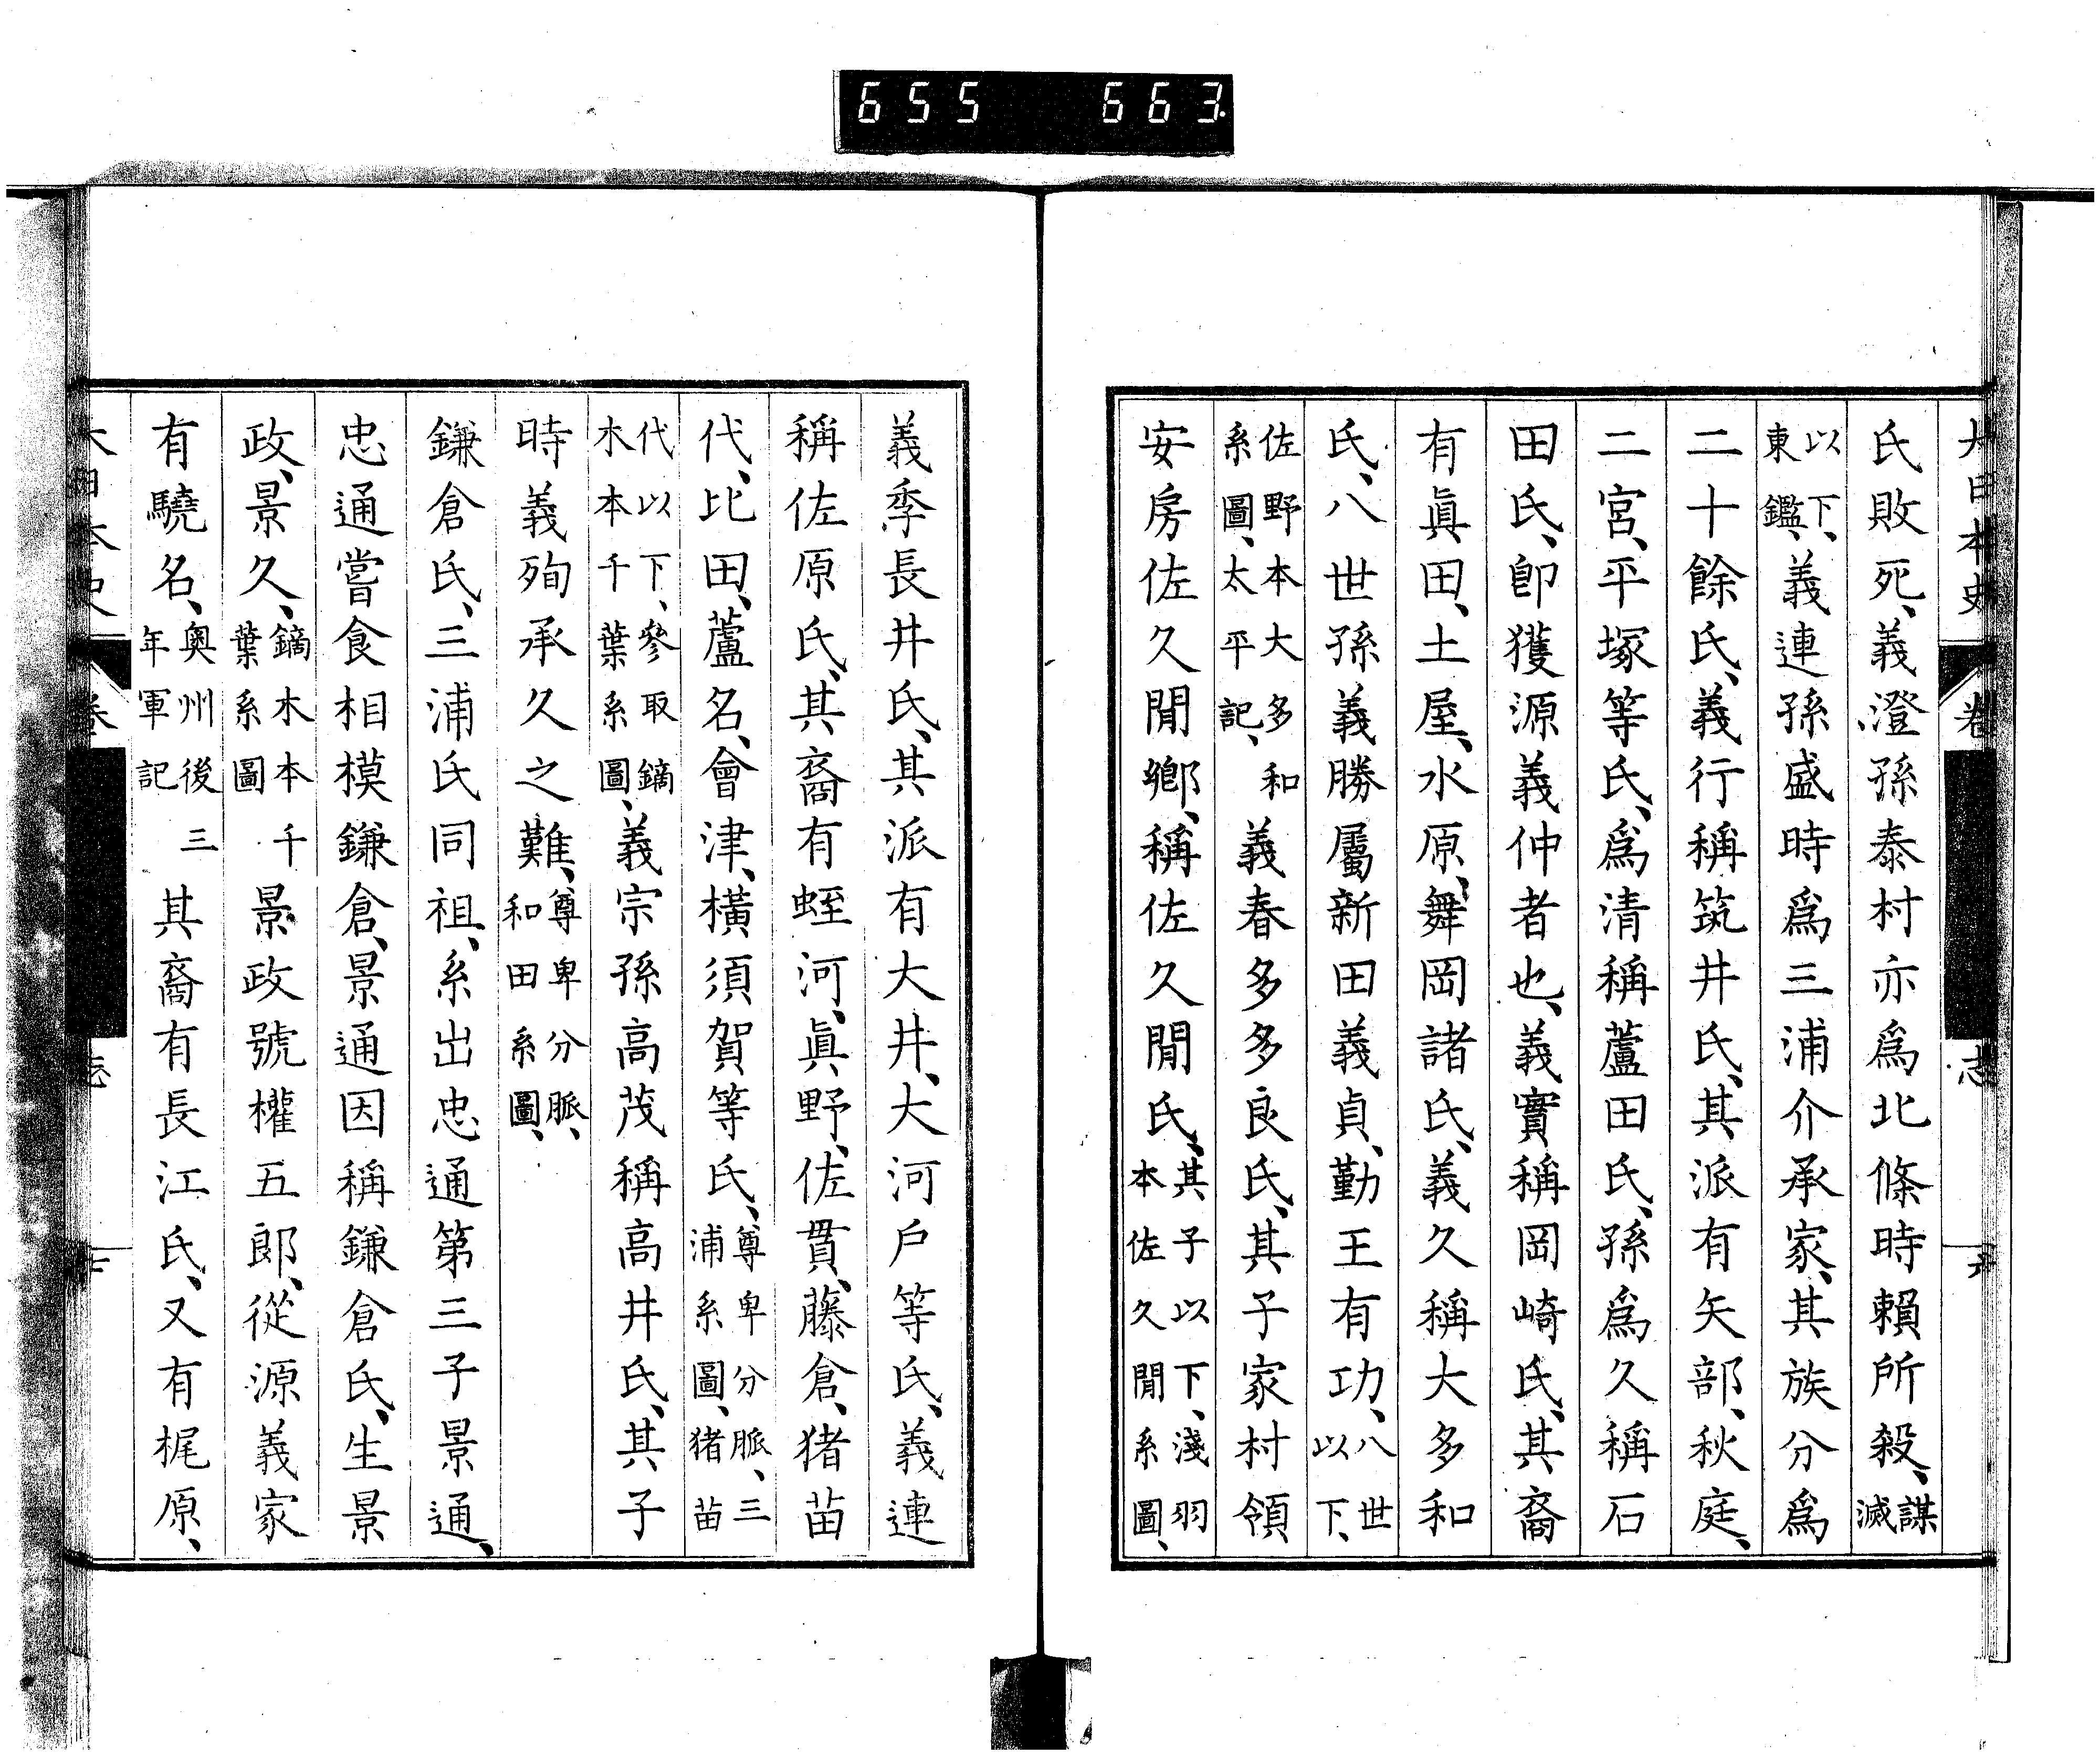 655 663
大日本史 卷 志
氏敗死、義澄孫泰村亦爲北條時賴所殺、謀滅
以下、東鑑、義連孫盛時爲三浦介承家、其族分爲
二十餘氏、義行稱筑井氏、其派有矢部、秋庭、
二宮、平塚等氏、爲清稱蘆田氏、孫爲久稱石
田氏、卽獲源義仲者也、義實稱岡崎氏、其裔
有眞田、土屋、水原、舞岡諸氏、義久稱大多和
氏、八世孫義勝屬新田義貞、勤王有功、八世以下、
佐野本大多和系圖、太平記、義春多多良氏、其子家村領
安房佐久閒鄉、稱佐久閒氏、其子以下、淺羽本佐久閒系圖、
義季長井氏、其派有大井、大河戶等氏、義連
稱佐原氏、其裔有蛭河、眞野、佐貫、藤倉、猪苗
代、比田、蘆名、會津、橫須賀等氏、尊卑分脈、三浦系圖、猪苗
代以下、參取鏑木本千葉系圖、義宗孫高茂稱高井氏、其子
時義殉承久之難、尊卑分脈、和田系圖、
鎌倉氏、三浦氏同祖、系出忠通第三子景通、
忠通嘗食相模鎌倉、景通因稱鎌倉氏、生景
政、景久、鏑木本千葉系圖景政號權五郎、從源義家
有驍名、奧州後三年軍記其裔有長江氏、又有梶原、
大日本史 卷 志